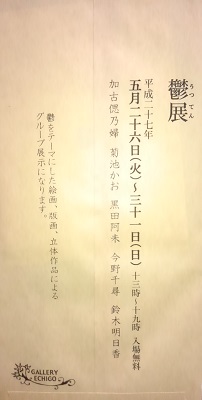 鬱展
うつてん
平成二十七年
五月二十六日(火)〜三十一日(日) 十三時〜十九時 入場無料
加古偲乃婦 菊池かお 黒田阿未 今野千尋 鈴木明日香
鬱をテーマにした絵画、版画、立体作品による
グループ展示になります。
GALLERY
ECHIGO